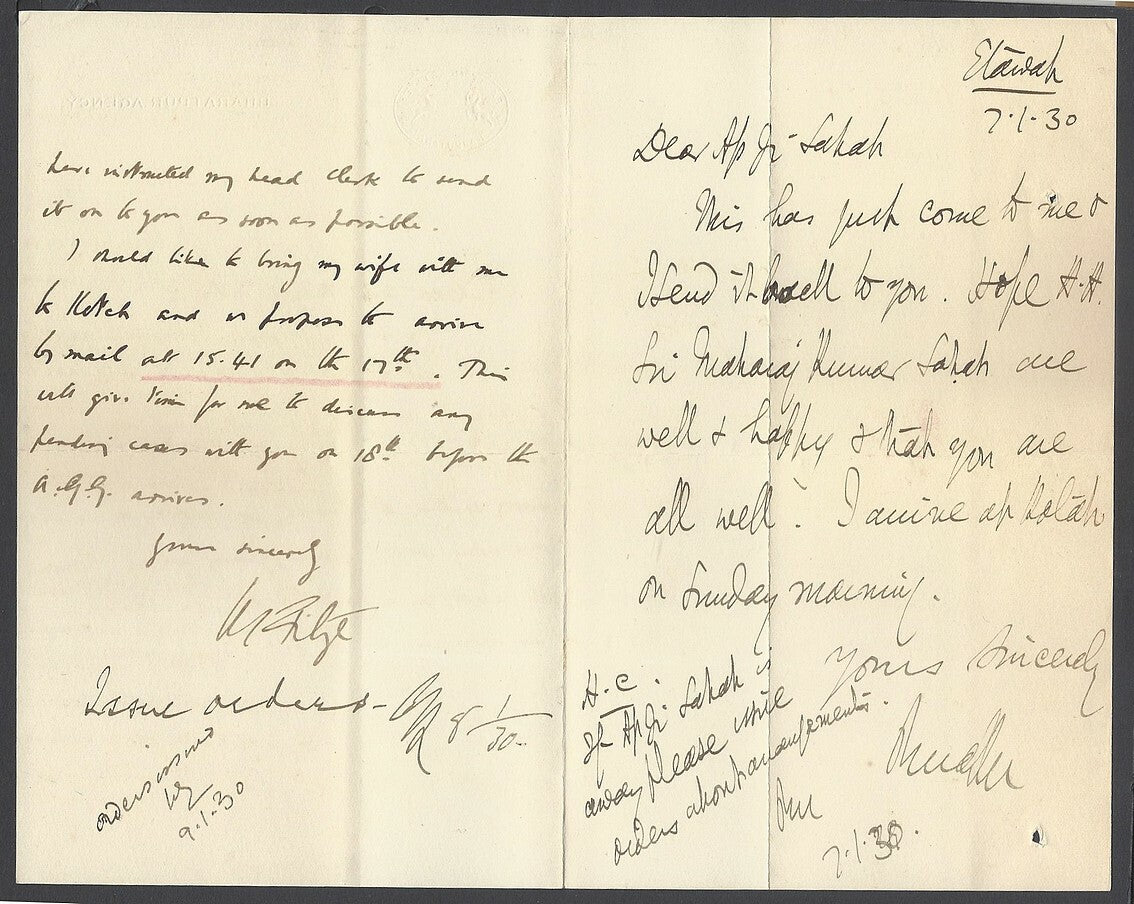 BHARATPUR AGENCY
have instructed my head clerk to send
it on to you as soon as possible.
I should like to bring my wife with me
to Kotah and we propose to arrive
by mail at 15.41 on the 17th. This
will give time for me to discuss any
pending cases with you on 18th before the
A.G.G. arrives.
Yours sincerely
Issue orders -
8 1/30.
orders issued
9.1.30
Etawah
7.1.30
Dear Ap Ji Sahah
This has just come to me &
I send it back to you. Hope H.H.
Sri Maharaj Kumar Sahah are
well & happy & that you are
all well. I arrive at Kotah
on Sunday morning.
Yours Sincerely
H.C.
If Ap Ji Sahah is
away please issue
orders about arrangements.
7.1.30.